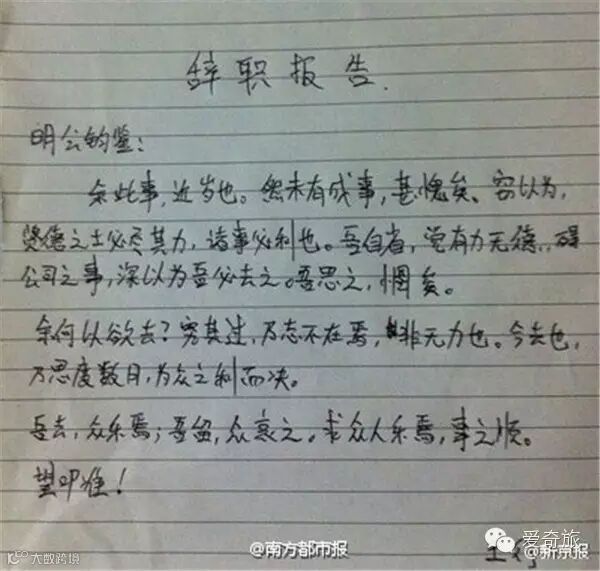 辞职报告.
明公钧鉴:
余此事,近岁也。然未有成事,甚愧矣。窃以为,
贤德之士必尽其力,诸事必利也。吾自省,觉有力无德,碍
公司之事,深以为吾必去之。吾思之,惘矣。
余何以欲去?究其过,乃志不在焉,非无力也。今去也,
乃思度数月,为众之利而决。
吾去,众乐焉;吾留,众哀之。求众人乐焉,事之顺。
望叩准!
大数跨境
@南方都市报
爱奇旅
@新京报